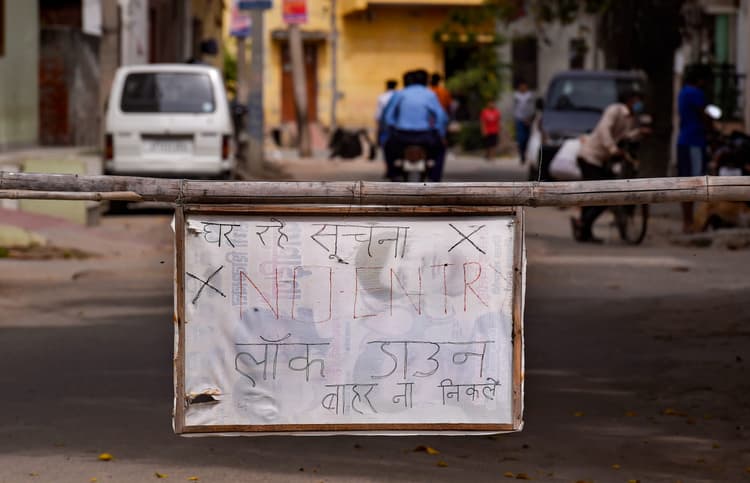 घर रहे सूचना X
X NO ENTR
लॉक डाउन
बाहर ना निकलें